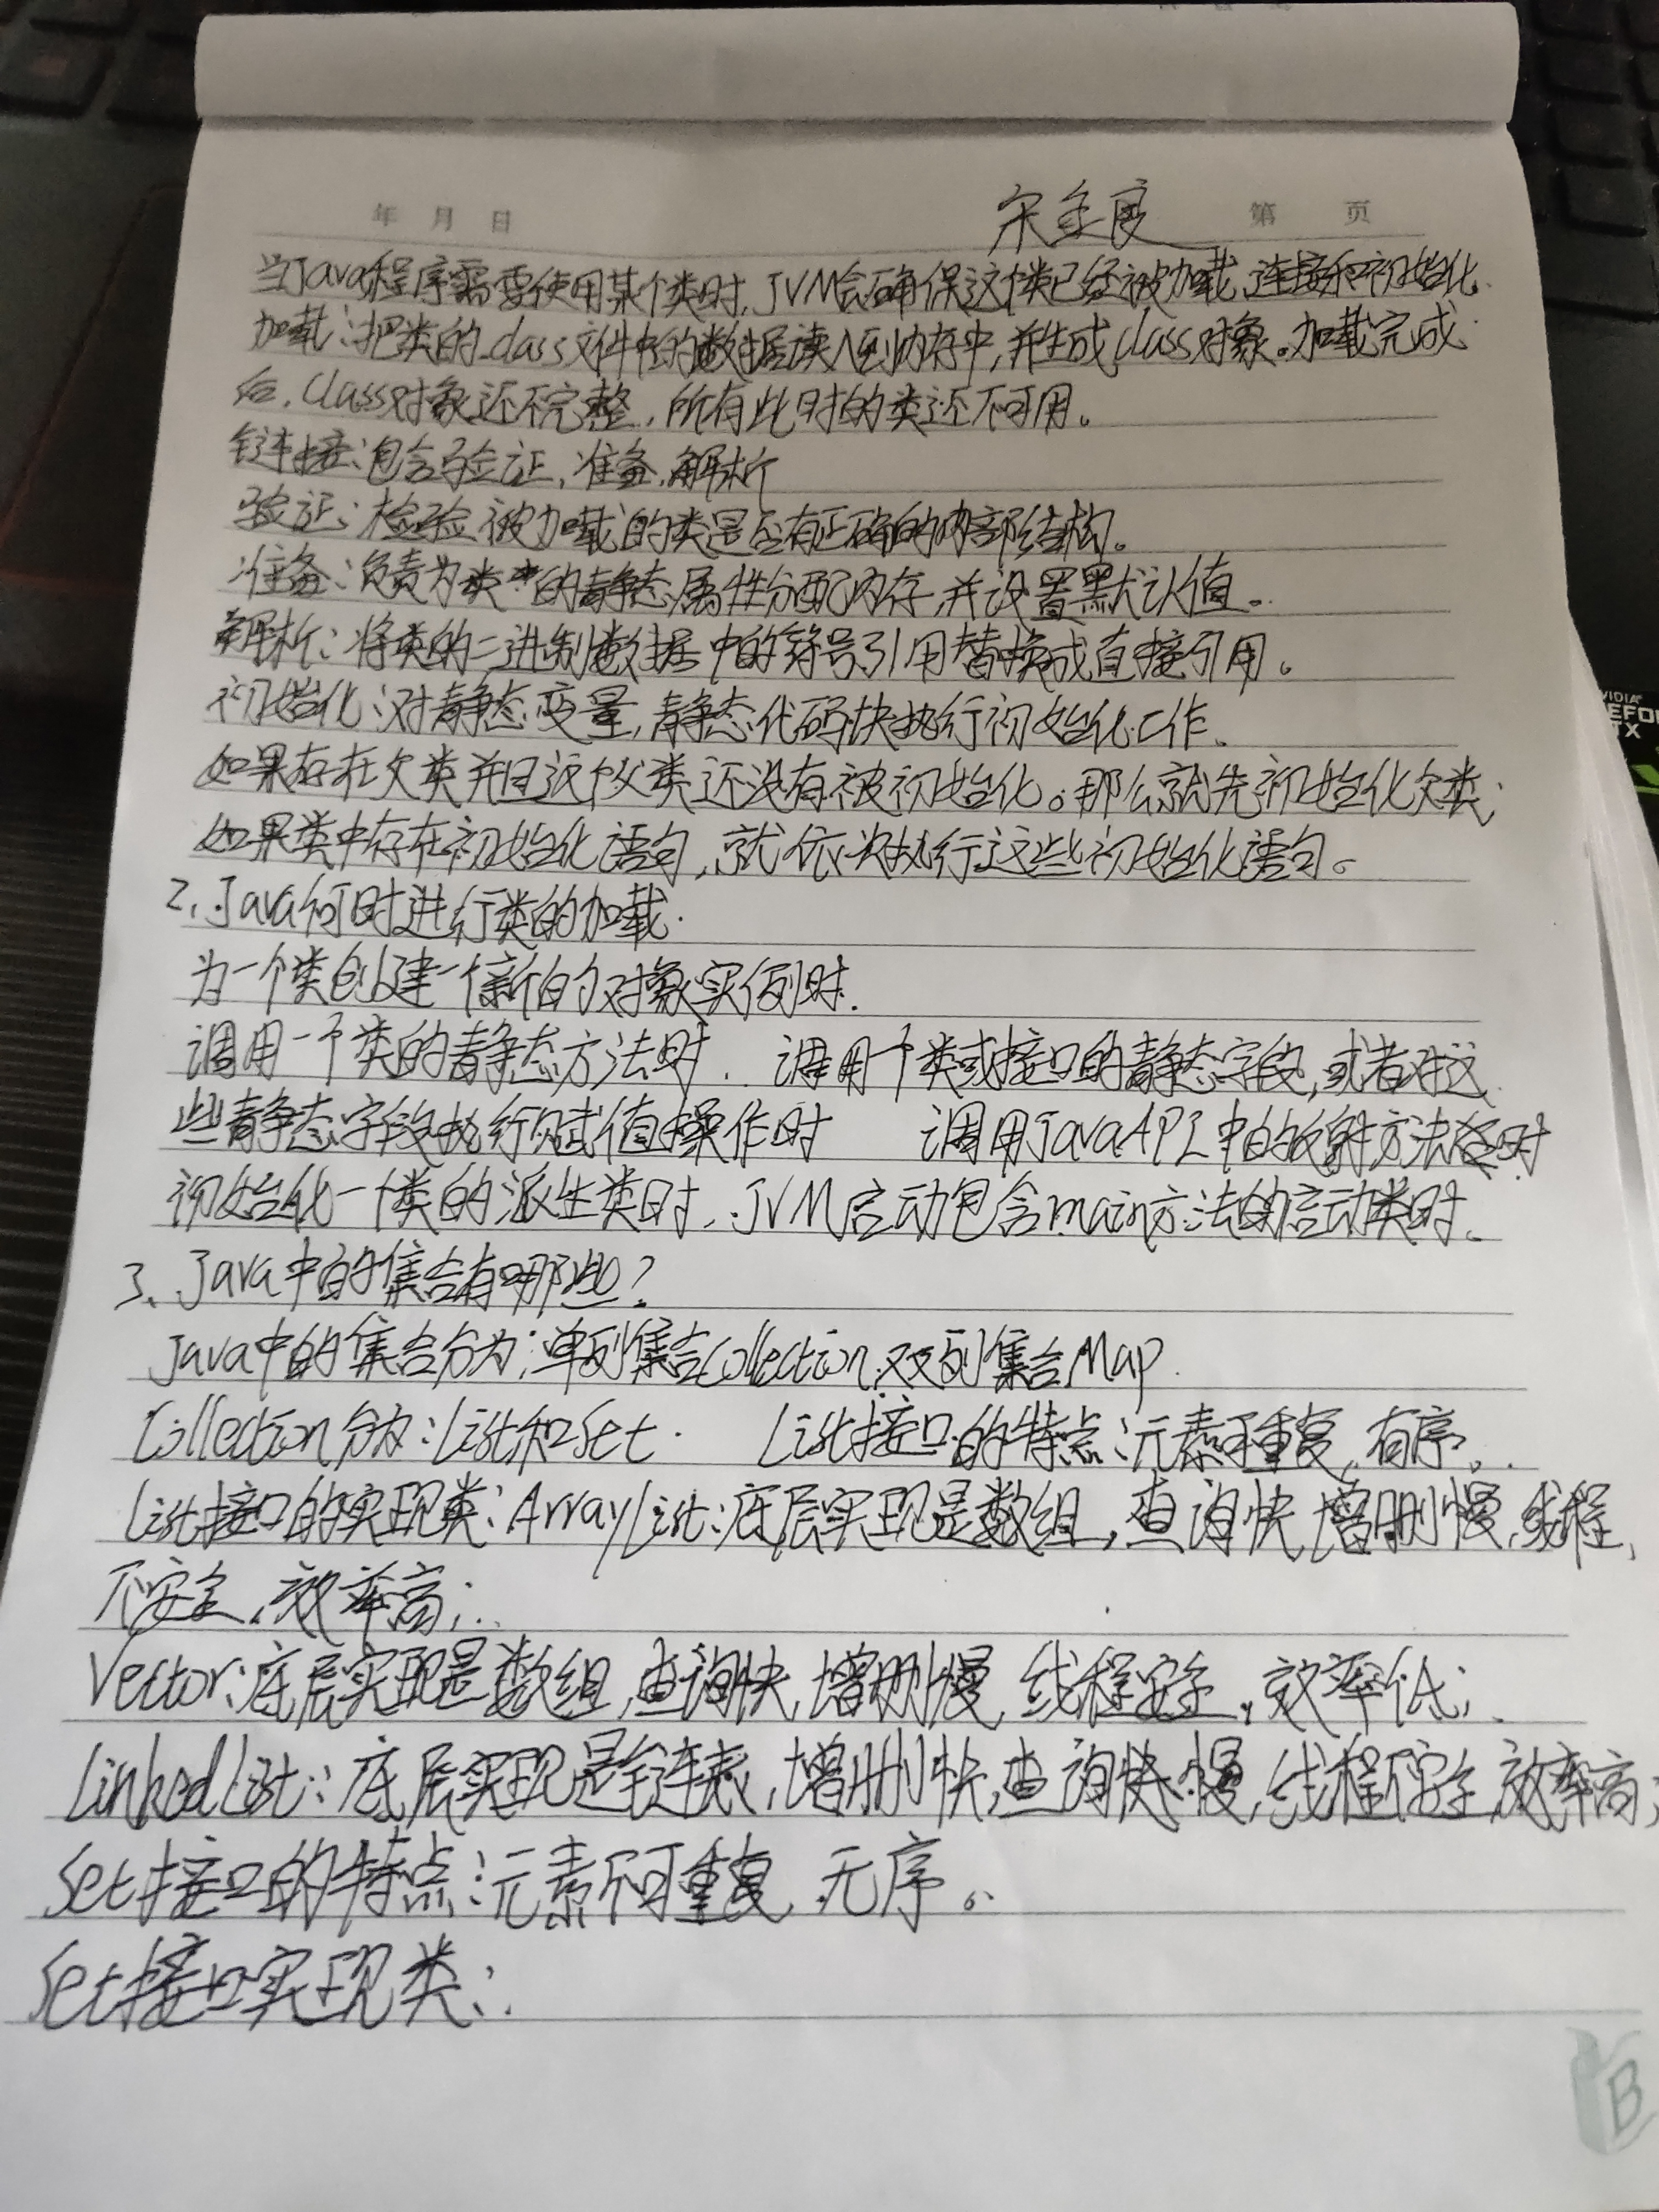 年 月 日 宋金 第 页
当Java程序需要使用某个类时,JVM会确保这个类已经被加载、连接和初始化.
加载:把类的.class文件中的数据读入到内存中,并生成class对象。加载完成
后,Class对象还不完整,所有此时的类还不可用。
链接:包含验证,准备,解析
验证:检验被加载的类是否有正确的内部结构。
准备:负责为类的静态属性分配内存,并设置默认值。
解析:将类的二进制数据中的符号引用替换成直接引用。
初始化:对静态变量,静态代码块执行初始化工作。
如果存在父类并且这个父类还没有被初始化。那么就先初始化父类;
如果类中存在初始化语句,就依次执行这些初始化语句。
2、Java何时进行类的加载.
为一个类创建一个新的对象实例时.
调用一个类的静态方法时. 调用个类或接口的静态字段,或者对这
些静态字段执行赋值操作时 调用JavaAPI中的反射方法时
初始化一个类的派生类时,JVM启动包含main方法的启动类时。
3、Java中的集合有哪些?
Java中的集合分为:单列集合Collection,双列集合Map.
Collection分为:List和Set. List接口的特点:元素可重复,有序.
List接口的实现类:ArrayList:底层实现是数组,查询快,增删慢,线程
不安全,效率高;
Vector:底层实现是数组,查询快,增删慢,线程安全,效率低;
LinkedList:底层实现是链表,增删快,查询慢,线程不安全,效率高;
Set接口的特点:元素不可重复,无序。
Set接口实现类:
B